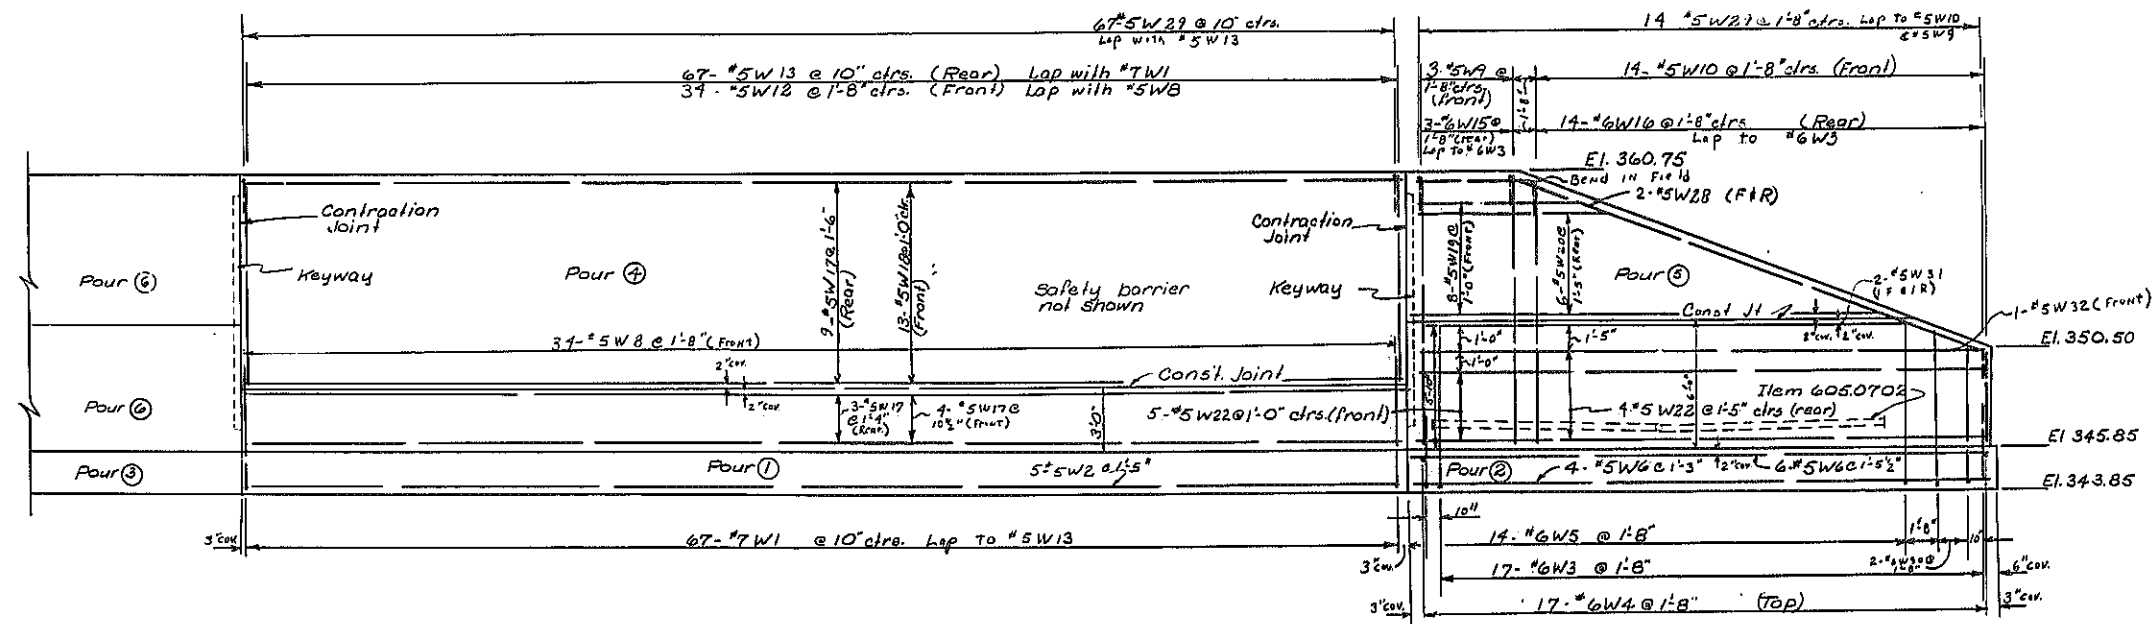 67-#5W29 @ 10" ctrs.
Lap with #5W13
14 #5W29 @ 1'-8" ctrs. Lap to #5W10
& #5W9
67- #5W13 @ 10" ctrs. (Rear) Lap with #7W1
34 - #5W12 @ 1'-8" ctrs. (Front) Lap with #5W8
3-#5W9 @
1'-8" ctrs.
(front)
1'-8"
14- #5W10 @ 1'-8" ctrs. (Front)
3-#6W15 @
1'-8" (rear)
Lap to #6W3
14-#6W16 @ 1'-8" ctrs (Rear)
Lap to #6W3
El. 360.75
Bend in Field
2-#5W28 (F&R)
Contraction
Joint
Keyway
Pour 6
Pour 4
9-#5W17 @ 1'-6"
(Rear)
13-#5W18 @ 1'-0" ctr.
(Front)
Safety barrier
not shown
Contraction
Joint
Keyway
8-#5W19 @
1'-0" (Front)
6-#5W20 @
1'-5" (Rear)
Pour 5
2-#5W31
(F & R)
1-#5W32 (Front)
Const Jt
2" cov.
2" cov.
El. 350.50
34-#5W8 @ 1'-8" (Front)
2" cov.
2" cov.
Const. Joint
Pour 6
3-#5W17
@ 1'-4"
(Rear)
4- #5W17 @
10½" (Front)
3'-0"
5'-10"
1'-0"
1'-0"
1'-5"
6'-0"
Item 605.0702
5-#5W22 @ 1'-0" ctrs. (front)
4-#5W22 @ 1'-5" ctrs (rear)
El 345.85
Pour 3
Pour 1
5-#5W2 @ 1'-5"
Pour 2
4- #5W6 @ 1'-3"
2" cov.
6-#5W6 @ 1'-5½"
El. 343.85
3" cov.
67- #7W1 @ 10" ctrs. Lap to #5W13
3" cov.
10"
14- #6W5 @ 1'-8"
1'-8"
10"
2-#6W30 @
1'-8"
17- #6W3 @ 1'-8"
6" cov.
3" cov.
17- #6W4 @ 1'-8" (Top)
3" cov.